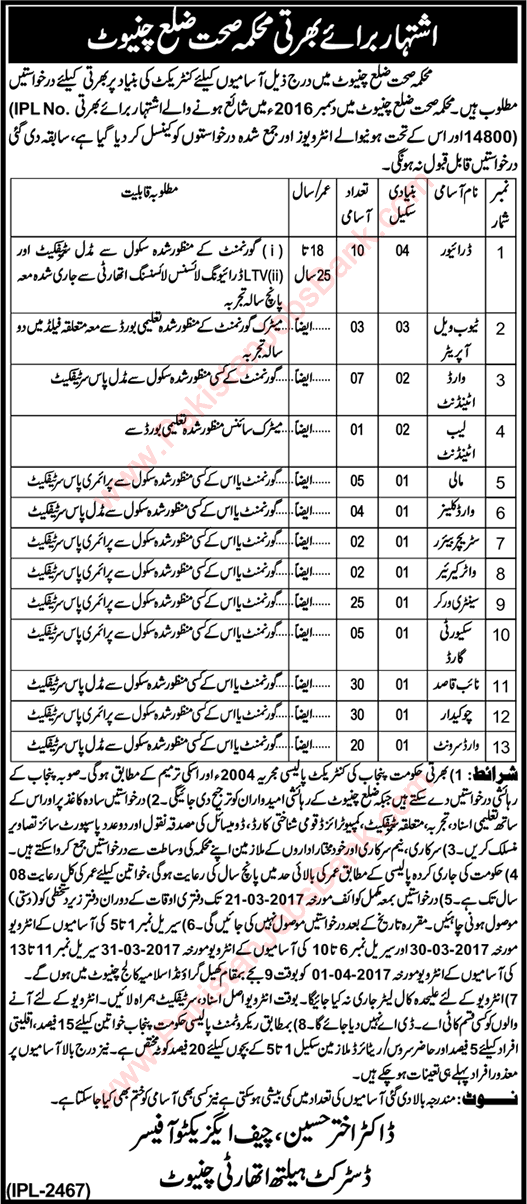 اشتہار برائے بھرتی محکمہ صحت ضلع چنیوٹ
محکمہ صحت ضلع چنیوٹ میں درج ذیل آسامیوں کیلئے کنٹریکٹ کی بنیاد پر بھرتی کیلئے درخواستیں
مطلوب ہیں۔ محکمہ صحت ضلع چنیوٹ میں دسمبر 2016ء میں شائع ہونے والے اشتہار برائے بھرتی (IPL No.
14800) اور اس کے تحت ہونیوالے انٹرویوز اور جمع شدہ درخواستوں کو کینسل کر دیا گیا ہے، سابقہ دی گئی
درخواستیں قابل قبول نہ ہونگی۔
نمبر شمار نام آسامی بنیادی سکیل تعداد آسامی عمر/سال مطلوبہ قابلیت
1 ڈرائیور 04 10 18 تا 25 سال (i) گورنمنٹ کے منظور شدہ سکول سے مڈل سٹیفکیٹ اور
(ii) LTV ڈرائیونگ لائسنس لائسنسنگ اتھارٹی سے جاری شدہ معہ
پانچ سالہ تجربہ
2 ٹیوب ویل آپریٹر 03 03 ایضاً...... میٹرک گورنمنٹ کے منظور شدہ تعلیمی بورڈ سے معہ متعلقہ فیلڈ میں دو
سالہ تجربہ
3 وارڈ اٹینڈنٹ 02 07 ایضاً...... گورنمنٹ کے کسی منظور شدہ سکول سے مڈل پاس سرٹیفکیٹ
4 لیب اٹینڈنٹ 02 01 ایضاً...... میٹرک سائنس منظور شدہ تعلیمی بورڈ سے
5 مالی 01 05 ایضاً...... گورنمنٹ یا اس کے کسی منظور شدہ سکول سے پرائمری پاس سرٹیفکیٹ
6 وارڈ کلینر 01 04 ایضاً...... گورنمنٹ یا اس کے کسی منظور شدہ سکول سے مڈل پاس سرٹیفکیٹ
7 سٹریچر بیئرر 01 02 ایضاً...... گورنمنٹ یا اس کے کسی منظور شدہ سکول سے پرائمری پاس سرٹیفکیٹ
8 واٹر کیرئیر 01 02 ایضاً...... گورنمنٹ یا اس کے کسی منظور شدہ سکول سے پرائمری پاس سرٹیفکیٹ
9 سینٹری ورکر 01 25 ایضاً...... گورنمنٹ یا اس کے کسی منظور شدہ سکول سے پرائمری پاس سرٹیفکیٹ
10 سکیورٹی گارڈ 01 05 ایضاً...... گورنمنٹ یا اس کے کسی منظور شدہ سکول سے پرائمری پاس سرٹیفکیٹ
11 نائب قاصد 01 30 ایضاً...... گورنمنٹ یا اس کے کسی منظور شدہ سکول سے مڈل پاس سرٹیفکیٹ
12 چوکیدار 01 30 ایضاً...... گورنمنٹ یا اس کے کسی منظور شدہ سکول سے پرائمری پاس سرٹیفکیٹ
13 وارڈ سرونٹ 01 20 ایضاً...... گورنمنٹ یا اس کے کسی منظور شدہ سکول سے مڈل پاس سرٹیفکیٹ
شرائط: 1) بھرتی حکومت پنجاب کی کنٹریکٹ پالیسی مجریہ 2004ء اور اسکی ترمیم کے مطابق ہوگی۔ صوبہ پنجاب کے
رہائشی درخواستیں دے سکتے ہیں جبکہ ضلع چنیوٹ کے رہائشی امیدواران کو ترجیح دی جائیگی۔ 2) درخواستیں سادہ کاغذ پر اور اس کے
ساتھ تعلیمی اسناد، تجربہ، متعلقہ سٹیفکیٹ، کمپیوٹرائزڈ قومی شناختی کارڈ، ڈومیسائل کی مصدقہ نقول اور دو عدد پاسپورٹ سائز تصاویر
منسلک کریں۔ 3) سرکاری، نیم سرکاری اور خود مختار اداروں کے ملازمین اپنے محکمہ کی وساطت سے درخواستیں جمع کروا سکتے ہیں۔
4) حکومت کی جاری کردہ پالیسی کے مطابق عمر کی بالائی حد میں پانچ سال کی رعایت ہوگی، خواتین کیلئے عمر کی کل رعایت 08
سال تک ہے۔ 5) درخواستیں بمعہ مکمل کوائف مورخہ 21-03-2017 تک دفتری اوقات کے دوران دفتر زیر دستخطی کو (دستی)
موصول ہونی چاہئیں۔ مقررہ تاریخ کے بعد درخواستیں موصول نہیں کی جائیں گی۔ 6) سیریل نمبر 1 تا 5 کی آسامیوں کے انٹرویو
مورخہ 30-03-2017 اور سیریل نمبر 6 تا 10 کی آسامیوں کے انٹرویو مورخہ 31-03-2017 سیریل نمبر 11 تا 13
کی آسامیوں کے انٹرویو مورخہ 01-04-2017 کو بوقت 9 بجے بمقام کھیل گراؤنڈ اسلامیہ کالج چنیوٹ میں ہوں گے۔
7) انٹرویو کے لئے علیحدہ کال لیٹر جاری نہ کیا جائیگا۔ بوقت انٹرویو اصل اسناد، سرٹیفکیٹ ہمراہ لائیں۔ انٹرویو کے لئے آنے
والوں کو کسی قسم کا ٹی اے۔ ڈی اے نہیں دیا جائے گا۔ 8) بمطابق ریکروٹمنٹ پالیسی حکومت پنجاب خواتین کیلئے 15 فیصد، اقلیتی
افراد کیلئے 5 فیصد اور حاضر سروس/ریٹائرڈ ملازمین سکیل 1 تا 5 کے بچوں کیلئے 20 فیصد کوٹہ مختص ہے۔ نیز درج بالا آسامیوں پر
معذور افراد پہلے ہی تعینات ہو چکے ہیں۔
نوٹ: مندرجہ بالا دی گئی آسامیوں کی تعداد میں کمی بیشی ہو سکتی ہے نیز کسی بھی آسامی کو ختم بھی کیا جا سکتا ہے۔
ڈاکٹر اختر حسین، چیف ایگزیکٹو آفیسر
ڈسٹرکٹ ہیلتھ اتھارٹی چنیوٹ
(IPL-2467)
www.PakistanJobsBank.com
www.PakistanJobsBank.com